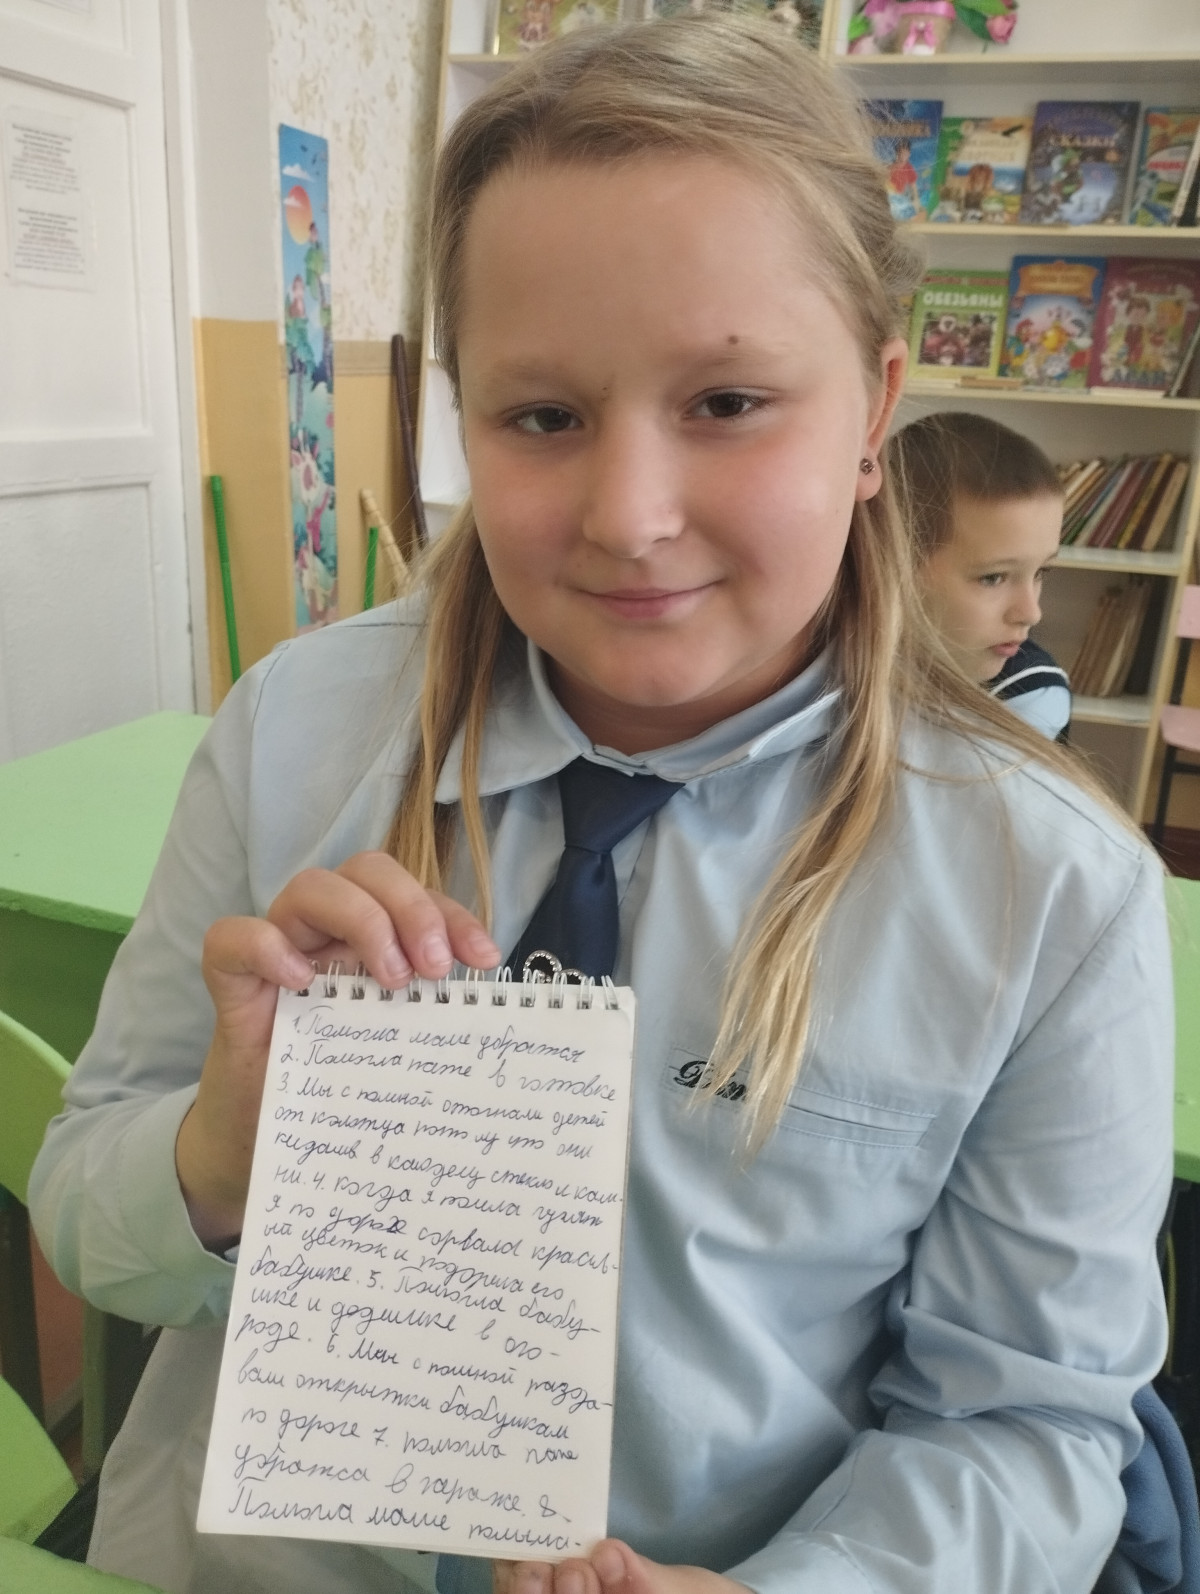 СКАЗКИ
ОБЕЗЬЯНЫ
1. Помогла маме убратся
2. Помогла папе в готовке
3. Мы с полиной отогнали детей
от колодца потому что они
кидали в колодец стекло и кам-
ни. 4. когда я пошла гулять
я по дороге сорвала красив-
ый цветок и подарила его
бабушке. 5. Помогла бабу-
шке и дедушке в ого-
роде. 6. Мы с полиной разда-
вали открытки бабушкам
по дороге 7. помогла папе
убратса в гараже. 8.
Помогла маме помыла-